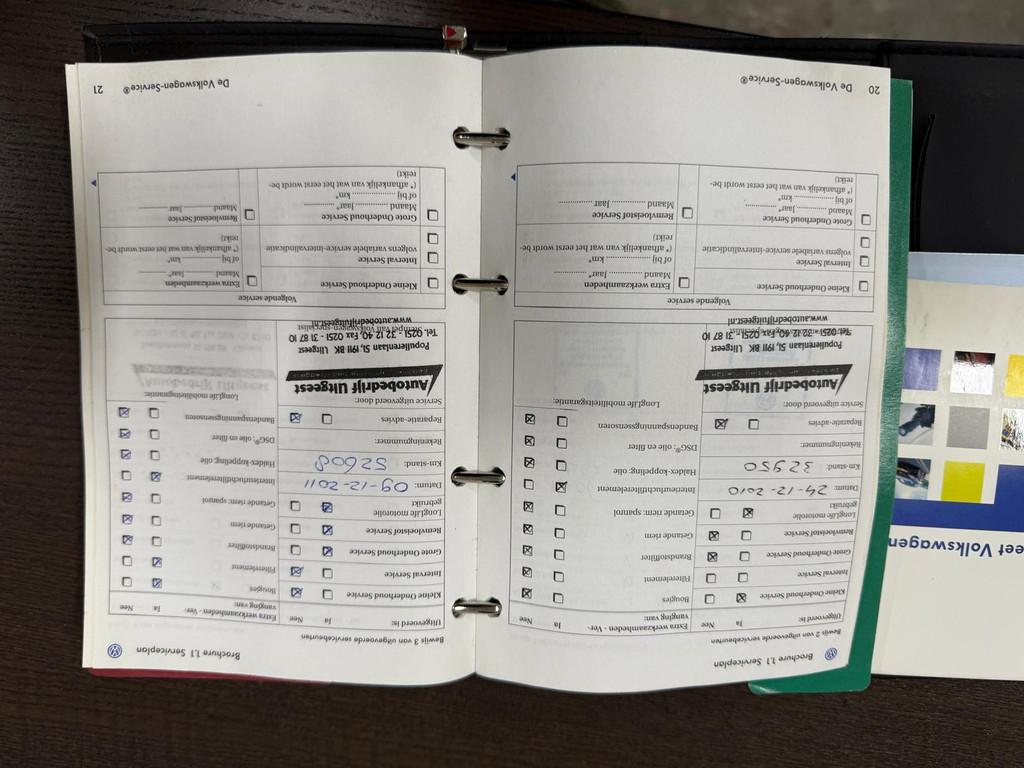 Brochure 1.1 Serviceplan
Bewijs 2 van uitgevoerde servicebeurten
Uitgevoerd is: Ja Nee
Kleine Onderhoud Service
Interval Service
Grote Onderhoud Service
Remvloeistof Service
LongLife motorolie
gebruikt
Datum: 24-12-2010
Km-stand: 32950
Rekeningnummer:
Reparatie-advies
Service uitgevoerd door:
Autobedrijf Uitgeest
Populierenlaan 51, 1911 BK Uitgeest
Tel. 0251 - 32 12 40, Fax 0251 - 31 87 10
www.autobedrijfuitgeest.nl
Extra werkzaamheden - Ver-
vanging van: Ja Nee
Bougies
Filterelement
Brandstoffilter
Getande riem
Getande riem: spanrol
Interieurluchtfilterelement
Haldex-koppeling: olie
DSG®: olie en filter
Bandenspanningsensoren
LongLife mobiliteitsgarantie:
Volgende service
Kleine Onderhoud Service
Interval Service
volgens variabele service-intervalindicatie
Grote Onderhoud Service
Maand ........ Jaar* ........
of bij ........ km*
(* afhankelijk van wat het eerst wordt be-
reikt)
Extra werkzaamheden
Maand ........ Jaar* ........
of bij ........ km*
(* afhankelijk van wat het eerst wordt be-
reikt)
Remvloeistof Service
Maand ........ Jaar ........
20 De Volkswagen-Service®
Brochure 1.1 Serviceplan
Bewijs 3 van uitgevoerde servicebeurten
Uitgevoerd is: Ja Nee
Kleine Onderhoud Service
Interval Service
Grote Onderhoud Service
Remvloeistof Service
LongLife motorolie
gebruikt
Datum: 09-12-2011
Km-stand: 52608
Rekeningnummer:
Reparatie-advies
Service uitgevoerd door:
Autobedrijf Uitgeest
Populierenlaan 51, 1911 BK Uitgeest
Tel. 0251 - 32 12 40, Fax 0251 - 31 87 10
Stempel van Volkswagen-specialist
www.autobedrijfuitgeest.nl
Extra werkzaamheden - Ver-
vanging van: Ja Nee
Bougies
Filterelement
Brandstoffilter
Getande riem
Getande riem: spanrol
Interieurluchtfilterelement
Haldex-koppeling: olie
DSG®: olie en filter
Bandenspanningsensoren
LongLife mobiliteitsgarantie:
Volgende service
Kleine Onderhoud Service
Interval Service
volgens variabele service-intervalindicatie
Grote Onderhoud Service
Maand ........ Jaar* ........
of bij ........ km*
(* afhankelijk van wat het eerst wordt be-
reikt)
Extra werkzaamheden
Maand ........ Jaar* ........
of bij ........ km*
(* afhankelijk van wat het eerst wordt be-
reikt)
Remvloeistof Service
Maand ........ Jaar ........
De Volkswagen-Service® 21
eet Volkswagen